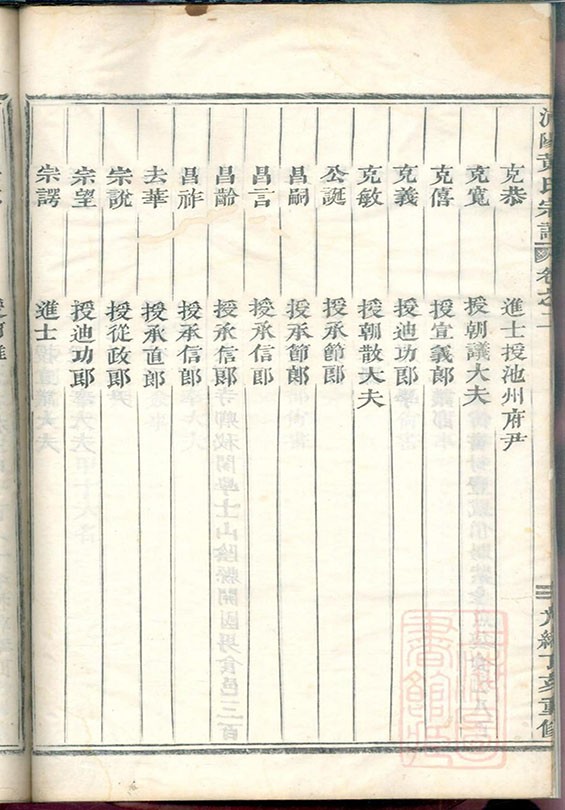 黃氏宗譜 卷之二 二 光緒丁亥重修
克恭 進士授池州府尹
克寬 授朝議大夫
克僖 授宣義郎
克義 授迪功郎
克敏 授朝散大夫
公誕 授承節郎
昌嗣 授承節郎
昌言 授承信郎
昌齡 授承信郎
昌祚 授承信郎
去華 授承直郎
宗說 授從政郎
宗望 授迪功郎
宗諤 進士